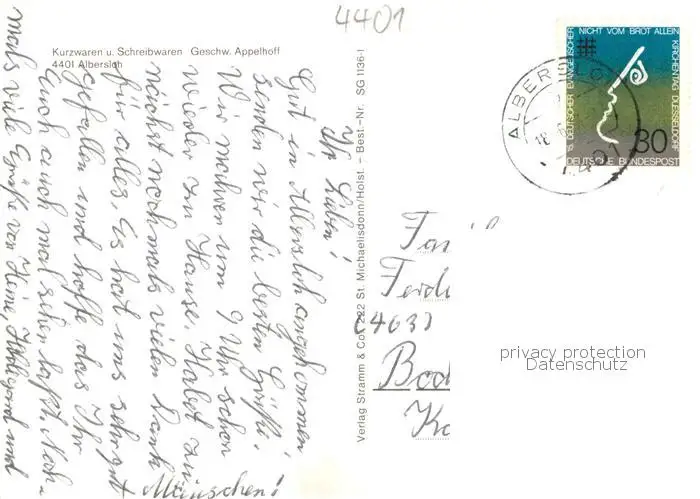 4401
Kurzwaren u. Schreibwaren Geschw. Appelhoff
4401 Albersloh
Ihr Lieben!
Gut in Albersloh angekommen
senden wir die besten Grüße.
Wir wahren um 9 Uhr schon
wieder zu Hause. Habet zu
nächst nochmals vielen Dank
für alles. Es hat uns sehr gut
gefallen und hoffe das Ihr
Euch auch mal sehen laßt. Noch-
mals viele Grüße von Heine, und
Mäuschen!
Verlag Stramm & Co. 222 St. Michaelisdonn/Holst. – Best.-Nr. SG 1136-I
15. DEUTSCHER EVANGELISCHER
NICHT VOM BROT ALLEIN
KIRCHENTAG DUESSELDORF
30
DEUTSCHE BUNDESPOST
ALBERSLO
4401
Fam
Ferdi
(463)
Boch
privacy protection
Datenschutz